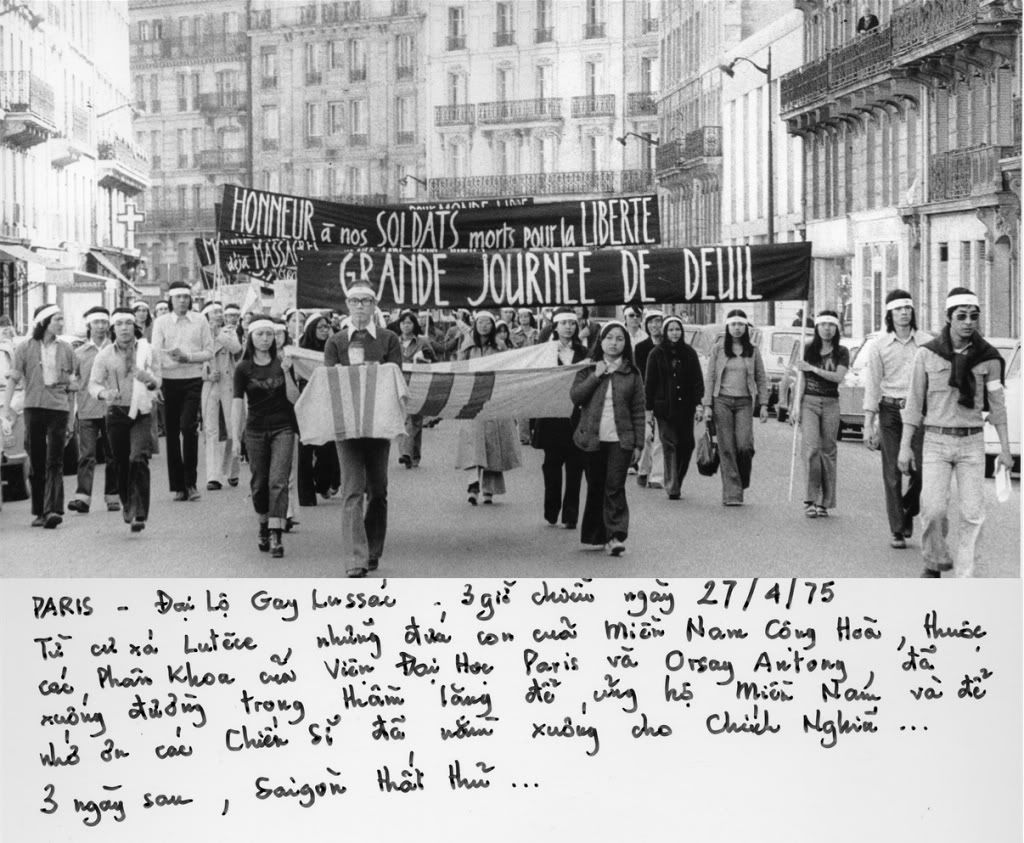 HONNEUR à nos SOLDATS morts pour la LIBERTE
déjà MASSAC
GRANDE JOURNEE DE DEUIL
PARIS - Đại Lộ Gay Lussac . 3 giờ chiều ngày 27/4/75
Từ cư xá Lutèce, những đứa con của Miền Nam Cộng Hoà, thuộc
các Phân Khoa của Viện Đại Học Paris và Orsay Antony, đã
xuống đường trong thầm lặng để ủng hộ Miền Nam và để
nhớ ơn các Chiến Sĩ đã nằm xuống cho Chính Nghĩa ...
3 ngày sau, Saigon thất thủ ...